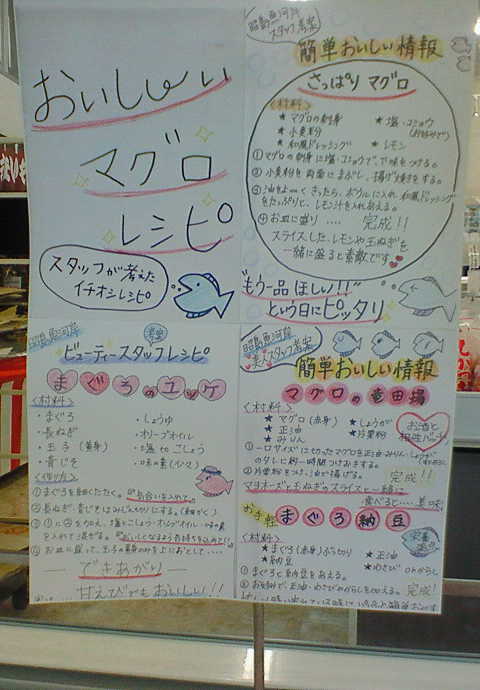 おいし〜い
マグロ
レシピ
スタッフが考えた
イチオシレシピ
昭島魚河岸
スタッフ考案
簡単おいしい情報
さっぱりマグロ
〈材料〉
★マグロの刺身
★塩・コショウ
(お好みで)
★小麦粉
★和風ドレッシング
★レモン
①マグロの刺身に塩・コショウで、下味をつける。
②小麦粉を両面にまぶし、揚げ焼きをする。
③油をよーくきったら、ボウルに入れ和風ドレッシング
をたっぷりと、レモン汁を入れあえる。
④お皿に盛り‥‥ 完成!!
スライスした、レモンや玉ねぎを
一緒に盛ると素敵です
"もう一品ほしい!!"
という日にピッタリ
昭島魚河岸
考案
ビューティースタッフレシピ
まぐろのユッケ
〈材料〉
・まぐろ
・長ねぎ
・玉子(黄身)
・青じそ
・しょうゆ
・オリーブオイル
・塩・こしょう
・味の素(少々)
〈作り方〉
①まぐろを細かくたたく。
②長ねぎ、青じそはみじん切りにする。(細かく)
入れて混ぜる。
④お皿に盛って、玉子の黄身のみを上におとして‥‥
できあがり
甘えびでもおいしい!!
昭島魚河岸
スタッフ考案
簡単おいしい情報
マグロの竜田揚
〈材料〉
★マグロ(赤身)
★正油
★みりん
★しょうが
★片栗粉
お酒と
相性バッチリ
①一口サイズに切ったマグロを正油・みりん・しょうが
のタレに約一時間つけおきする。
②片栗粉をつけ、油で揚げる。
完成!!
マヨネーズや玉ねぎのスライスと一緒に
食べると‥‥
お手軽
まぐろ納豆
栄養満点
★まぐろ(赤身)ぶつ切り
★納豆
★正油
★わさび orからし
①まぐろと納豆をあえる。
②お好みで、正油・わさびorからしを加える。
完成!